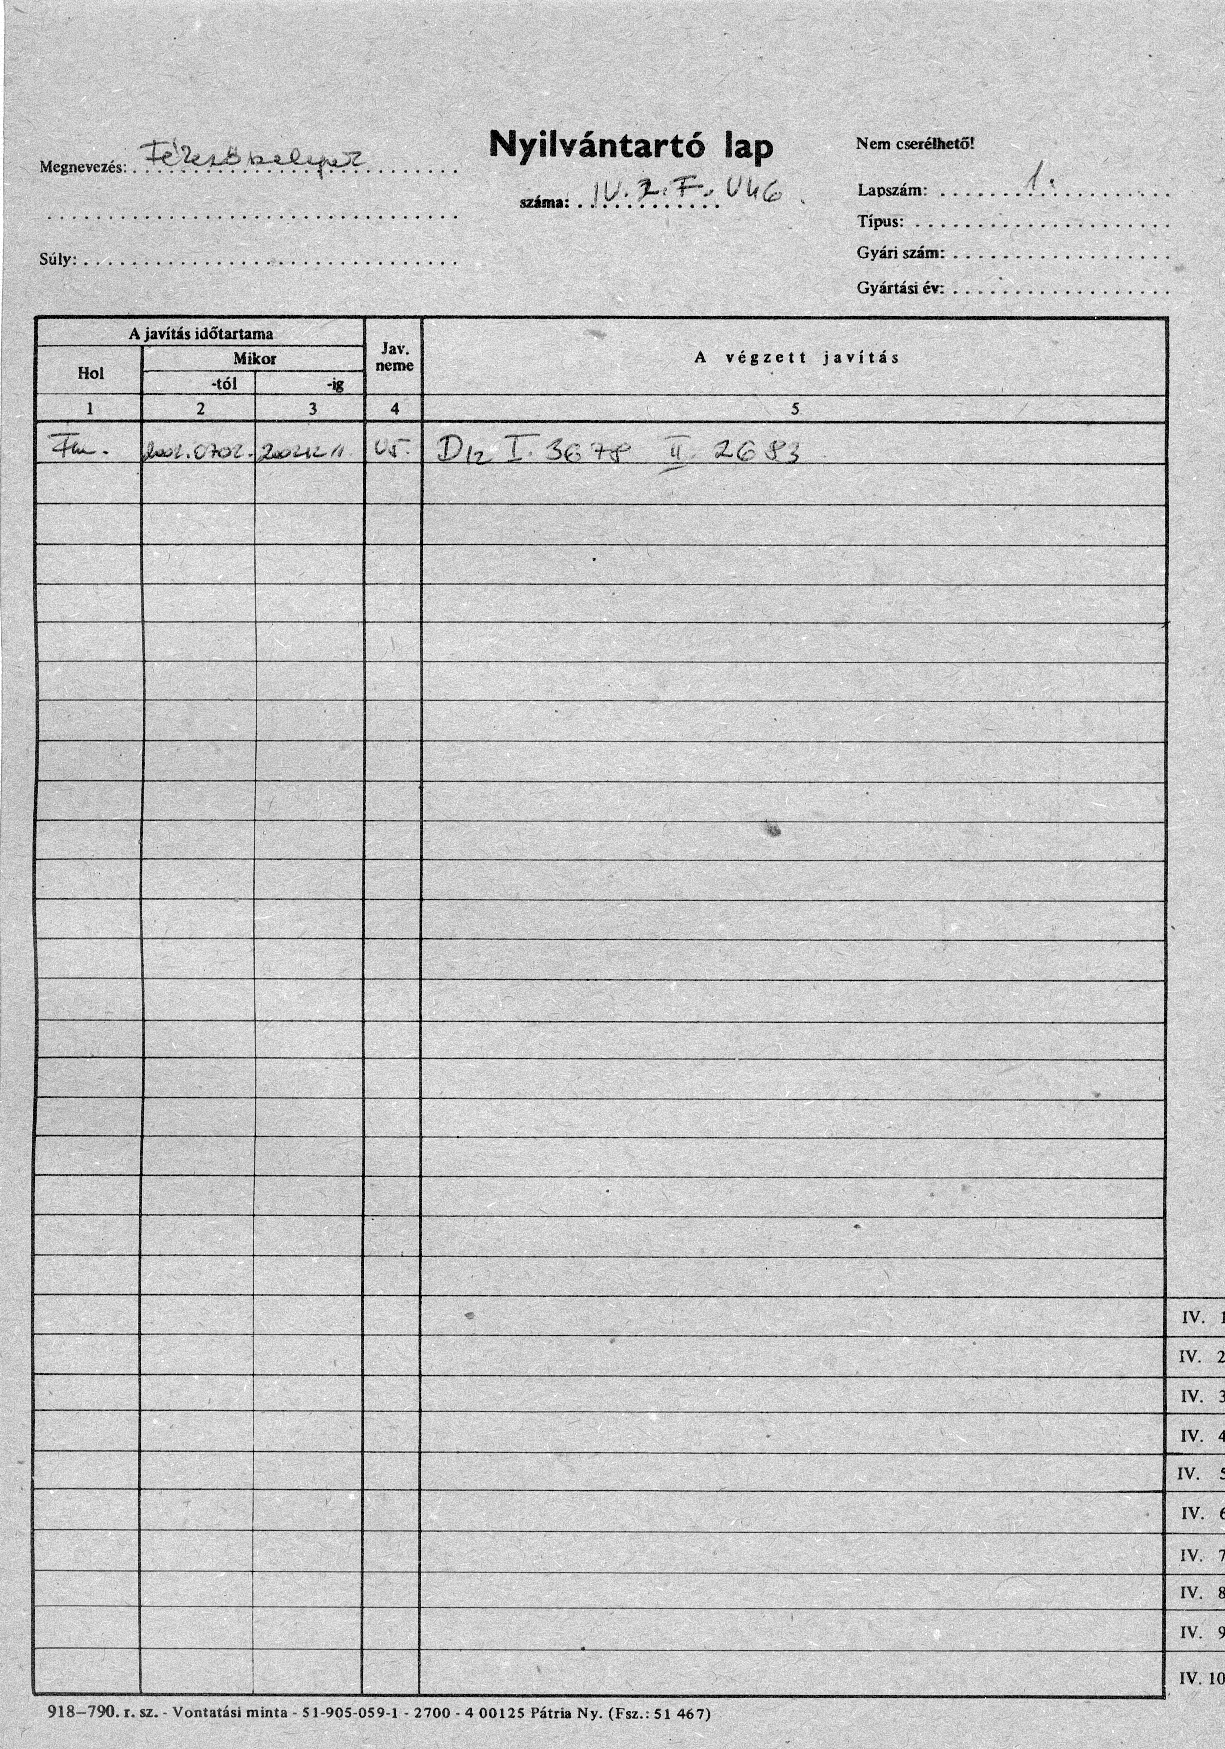 Nyilvántartó lap
Nem cserélhető!
Megnevezés:
száma: IV. 2. F. V46
Lapszám: 1.
Típus:
Súly:
Gyári szám:
Gyártási év:
A javítás időtartama
Jav. neme
A végzett javítás
Hol
Mikor
-tól
-ig
1 2 3 4 5
Fm. 2002.07.02. V5. D12 I. 3678 II. 2683
IV. 1
IV. 2
IV. 3
IV. 4
IV. 5
IV. 6
IV. 7
IV. 8
IV. 9
IV. 10
918–790. r. sz. - Vontatási minta - 51-905-059-1 - 2700 - 4 00125 Pátria Ny. (Fsz.: 51 467)